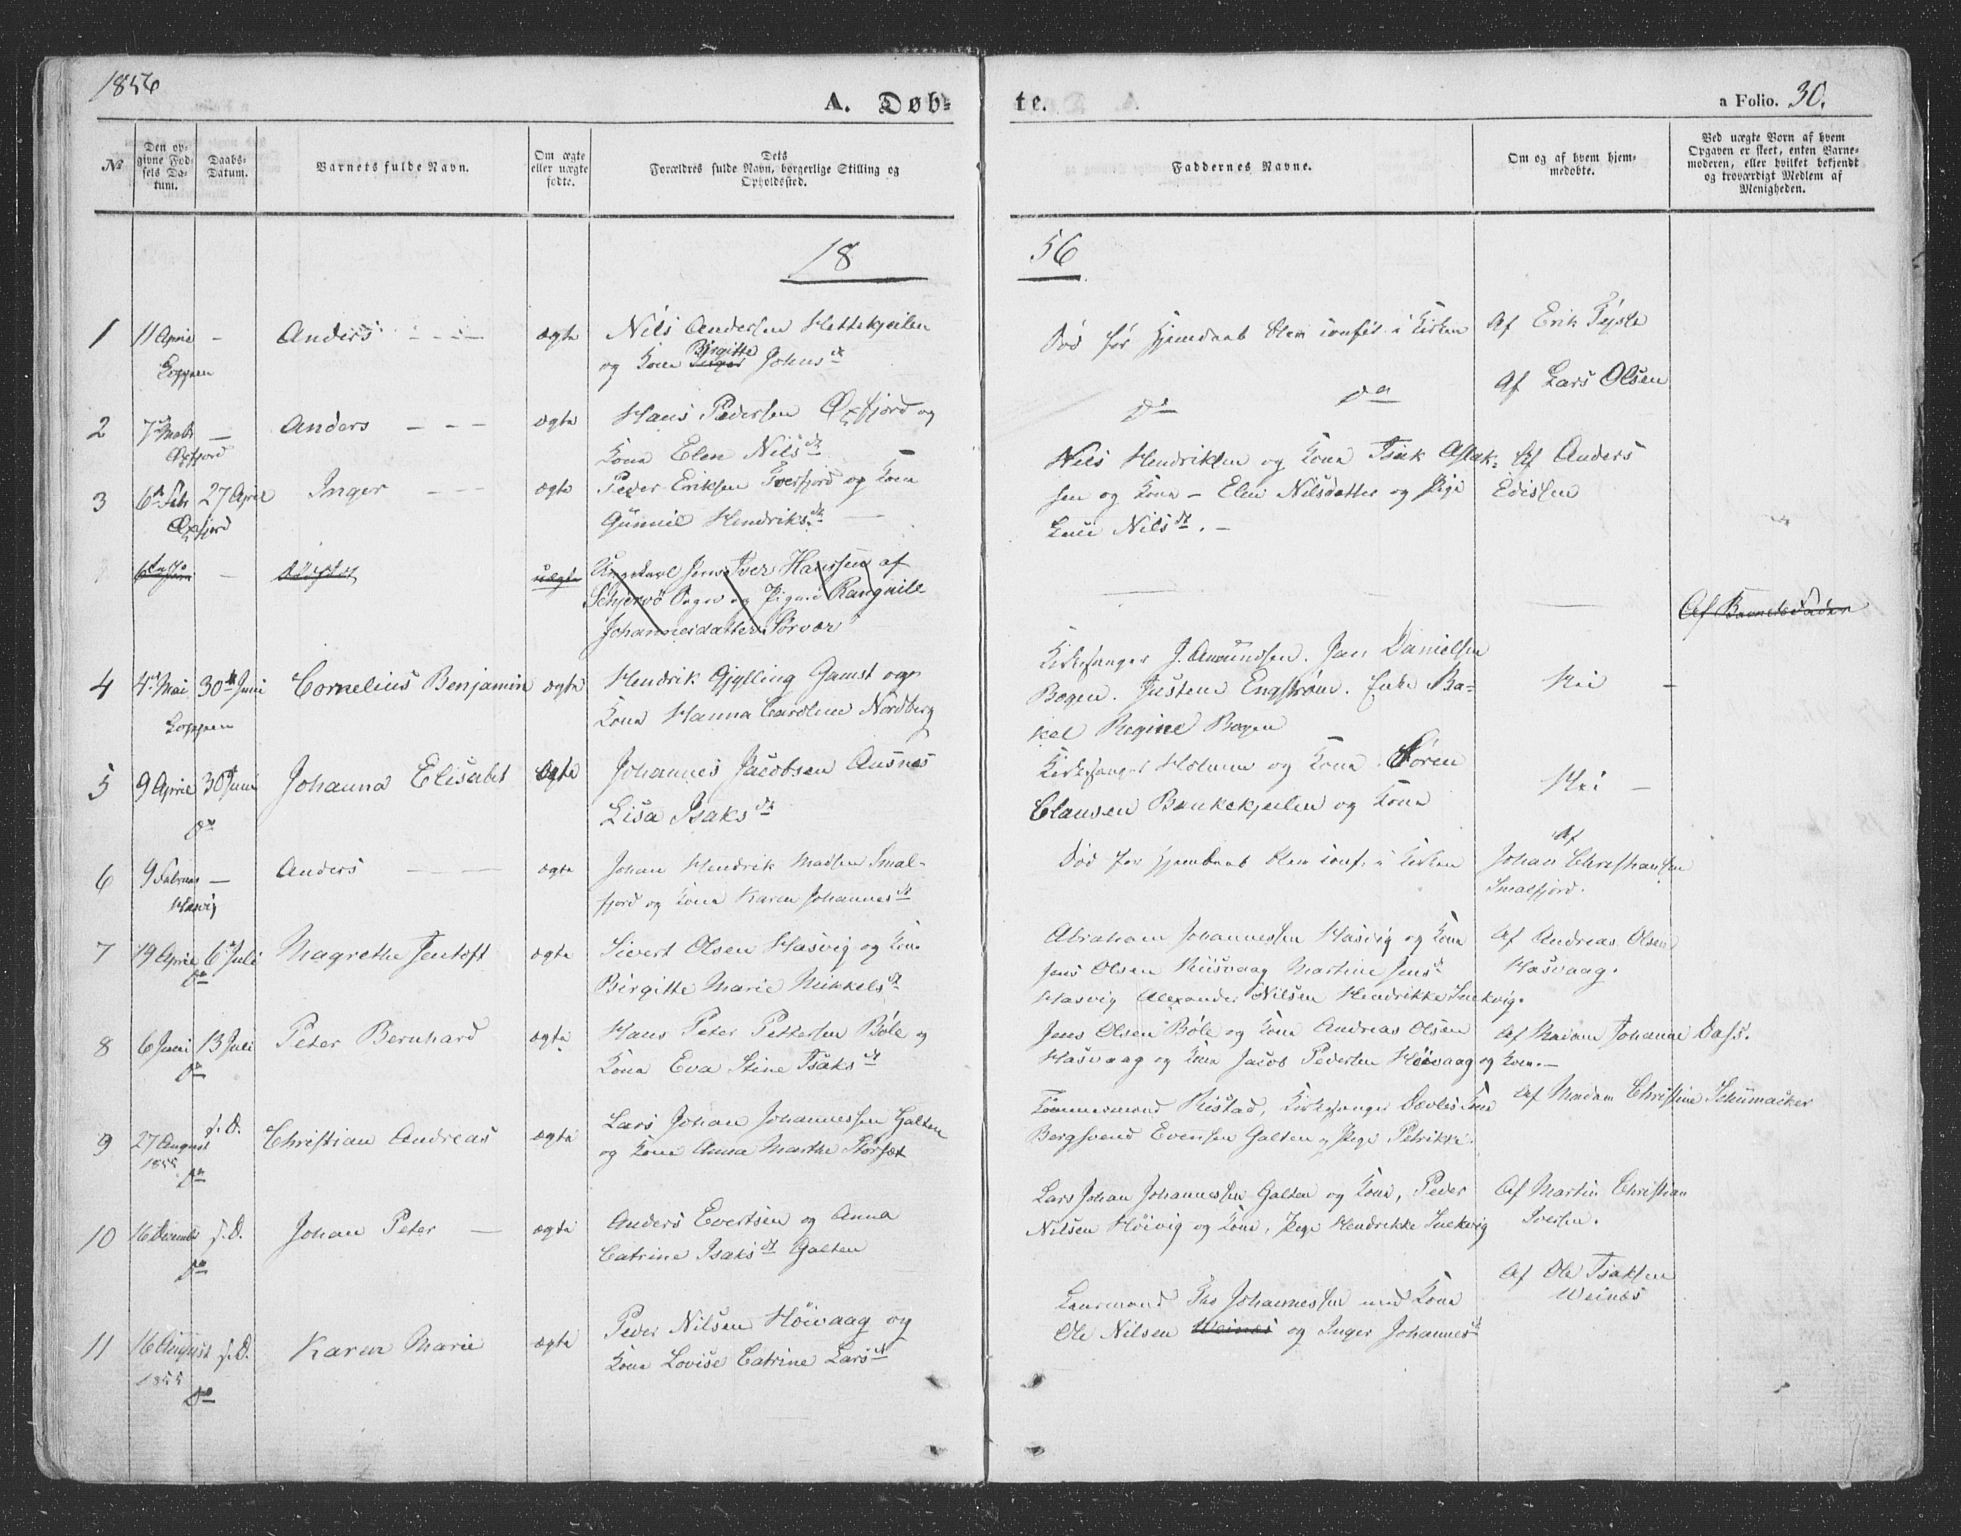 1856
A. Døb-
te.
a Folio. 30.
№
Den op-
givne Fød-
sels Da-
tum.
Daabs-
Datum.
Barnets fulde Navn.
Om ægte
eller uægte
fødte.
Dets
Forældres fulde Navn, borgerlige Stilling og
Opholdssted.
Faddernes Navne.
Om og af hvem hjem-
medøbte.
Ved uægte Børn af hvem
Opgaven er skeet, enten Barne-
moderen, eller hvilket bekjendt
og troværdigt Medlem af
Menigheden.
18
56
1 11 April - Anders ægte Nils Andersen Hettekjeilen
Loppen og Kona Birgitte Inger Johnsdt
Død før Hjemdaab blev i Kirken
Af Erik
2 7de Mabr - Anders ægte Hans Pedersen Øxfjord og
Øxfjord Kona Elen Nilsdt
Do Do Af Lars Olsen
3 6te Febr 27 April Inger ægte Peder Eriksen Tverfjord og Kona
Øxfjord Gunnil Hendriksdt
Nils Hendriksen og Kona Isak Aslak- Af Anders
sen og Kona - Elen Nilsdatter og Pige Edissen
Nilsdt. -
- uægte Ungkarl Jens Iver Hansen af
Schjervø Sogn og Pigen Rangnile
Johannesdatter Sørvær
Af Barnets Fader
4 4de Mai 30te Juni Cornelius Benjamin ægte Hendrik Gjylling Gamst og
Loppen Kona Hanna Caroline Nordberg
Kirkesanger J. Amundsen. Jan Danielsen
Bogen. Justene Engstrøm. Enke Ra-
kel Regine Bogen
Nei -
5 9 April 30te Juni Johanna Elisabet ægte Johannes Jacobsen Ausnes
Do Lisa Isaksdt
Kirkesanger Holmen og Kona. Søren
Clausen Bankekjeilen og Kona
Nei -
6 9 Februar - Anders ægte Johan Hendrik Madsen Smal-
Hasvig fjord og Kona Karen Johannesdt
Død før Hjemdaab blev conf. i Kirken
Af
Johan Christiansen
Smalfjord.
7 19 April 6te Juli Magrethe Jentoft ægte Sivert Olsen Hasvig og Kona
Do Birgitte Marie Mikkelsdt
Abraham Johannessen Hasvig og Kona
Jens Olsen Riisvaag Martine Jensdt
Hasvig Alexander Nilsen Hendrikke Snekvig.
Af Andreas Olsen
Hasvaag.
8 6 Juni 13 Juli Peter Bernhard ægte Hans Peter Pettersen Bøle og
Do Kona Eva Stine Isaksdt
Jens Olsen Bøle og Kona Andreas Olsen
Hasvaag og Kona Jacob Pedersen Høivaag og Kona. -
Af Madam Johanne Dass.
9 27 August s. D. Christian Andreas ægte Lars Johan Johannessen Galten
1855 og Kona Anna Marthe Størset
Do
Ristad, Kirkesanger Kona
Bergsvend Evensen Galten og Pige Petrikke.
Af Madam Christine Schumacker
10 16 Decembr s. D. Johan Peter - ægte Anders Evertsen og Anna
Do Catrine Isaksdt Galten
Lars Johan Johannessen Galten og Kona, Peder
Nilsen Høivig og Kona, Pige Hendrikke Snekvig
Af Martin Christian
Iversen.
11 16 August s. D. Karen Marie ægte Peder Nilsen Høivaag og
1855 Kona Lovise Catrine Larsdt
Do
Lensmand Johannessen med Kona
Ole Nilsen Weines og Inger Johannesdt
Af Ole Isaksen
Weines